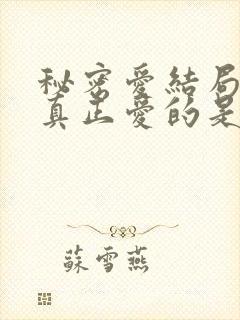 秘密愛結局
真正愛的是
蘇雪燕